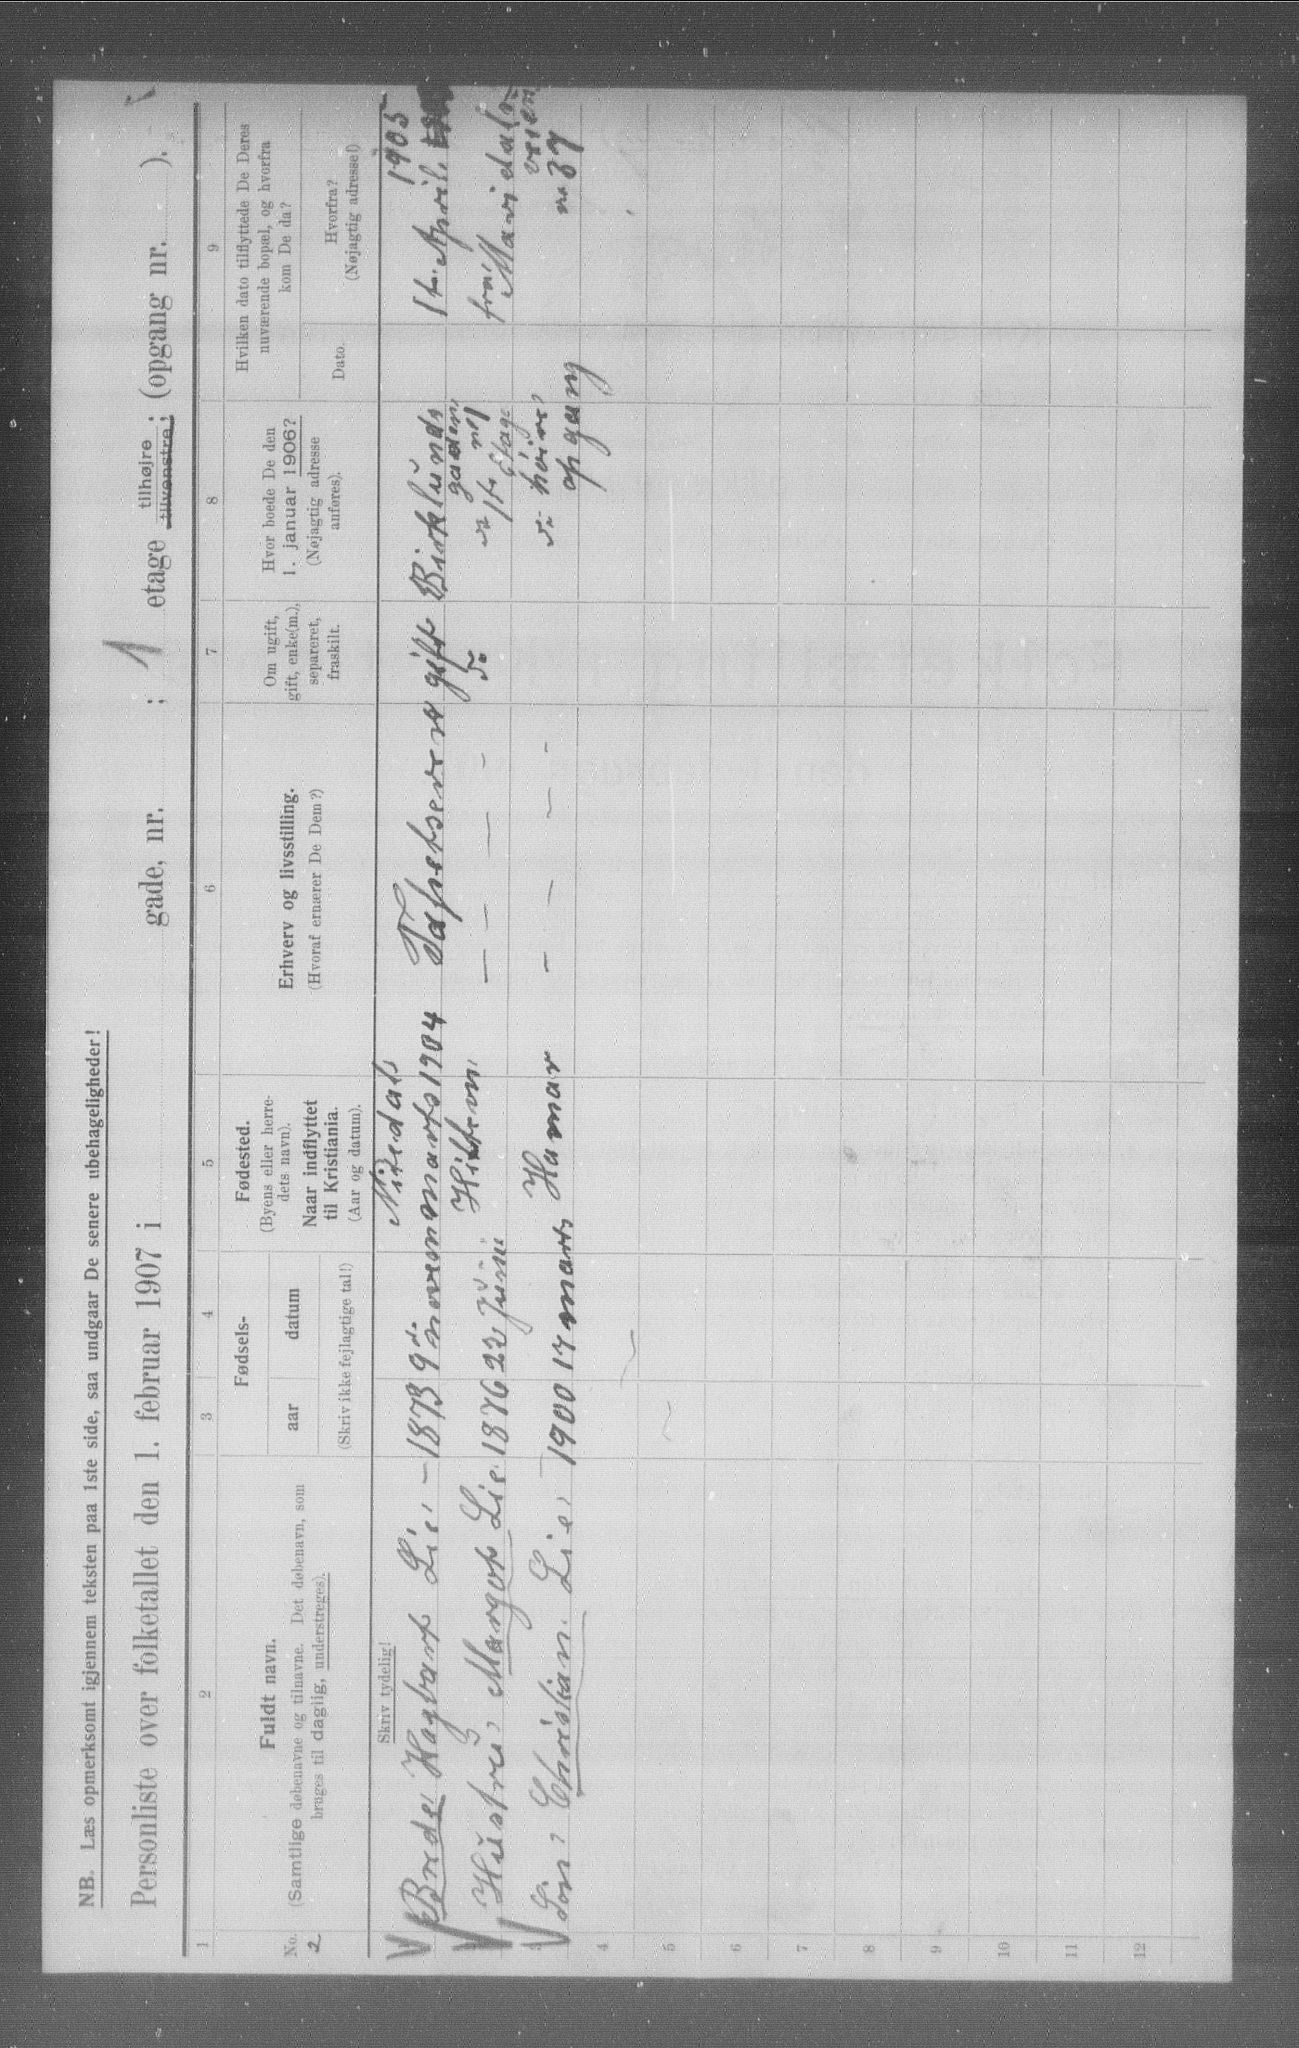 NB. Læs opmerksomt igjennem teksten paa 1ste side, saa undgaar De senere ubehageligheder!
Personliste over folketallet den 1. februar 1907 i gade, nr. ; 1 etage tilhøjre tilvenstre; (opgang nr. ).
1 2 3 4 5 6 7 8 9
No. 2
Fuldt navn.
(Samtlige døbenavne og tilnavne. Det døbenavn, som
bruges til daglig, understreges).
Fødsels-
aar datum
(Skriv ikke fejlagtige tal!)
Fødested.
(Byens eller herre-
dets navn).
Naar indflyttet
til Kristiania.
(Aar og datum).
Erhverv og livsstilling.
(Hvoraf ernærer De Dem?)
Om ugift,
gift, enke(m.),
separeret,
fraskilt.
Hvor boede De den
1. januar 1906?
(Nøjagtig adresse
anføres).
Hvilken dato tilflyttede De Deres
nuværende bopæl, og hvorfra
kom De da?
Dato.
Hvorfra?
(Nøjagtig adresse!)
Skriv tydelig!
Nitedal 1905
Brede Hagbart Lie - 1873 9 novem marts 1904 Tapetserer gift Birklunds 1ste April
Hittern gaden
Hustru Margot Lie 1876 22 Juni - - - - do 1ste Etage fra Maridals
veien
3 Søn Christian Lie 1900 17 marts Hamar - - - - høire no 37
opgang
4
5
6
7
8
9
10
11
12